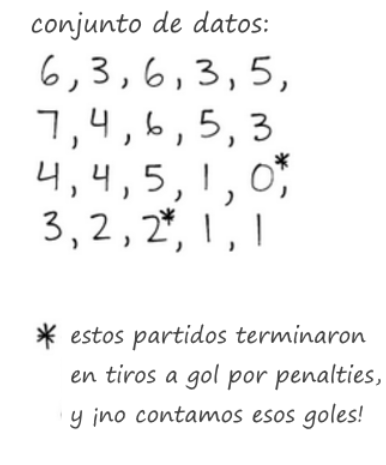 conjunto de datos:
6, 3, 6, 3, 5,
7, 4, 6, 5, 3
4, 4, 5, 1, 0*,
3, 2, 2*, 1, 1
* estos partidos terminaron
en tiros a gol por penalties,
y ¡no contamos esos goles!